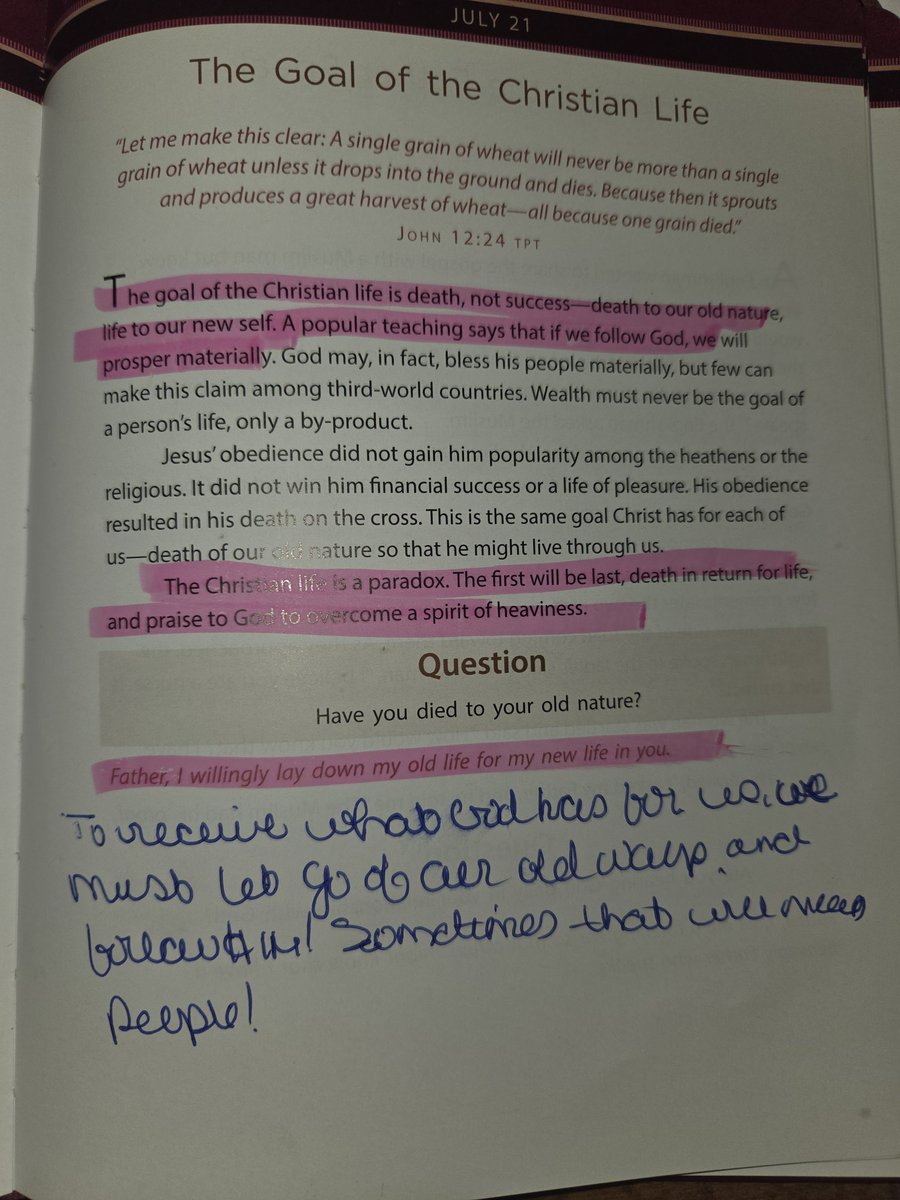 JULY 21
The Goal of the Christian Life
"Let me make this clear: A single grain of wheat will never be more than a single
grain of wheat unless it drops into the ground and dies. Because then it sprouts
and produces a great harvest of wheat—all because one grain died."
JOHN 12:24 TPT
The goal of the Christian life is death, not success—death to our old nature,
life to our new self. A popular teaching says that if we follow God, we will
prosper materially. God may, in fact, bless his people materially, but few can
make this claim among third-world countries. Wealth must never be the goal of
a person's life, only a by-product.
Jesus' obedience did not gain him popularity among the heathens or the
religious. It did not win him financial success or a life of pleasure. His obedience
resulted in his death on the cross. This is the same goal Christ has for each of
us—death of our old nature so that he might live through us.
The Christian life is a paradox. The first will be last, death in return for life,
and praise to God to overcome a spirit of heaviness.
Question
Have you died to your old nature?
Father, I willingly lay down my old life for my new life in you.
To receive what God has for us, we
must let go of our old ways and
Sometimes that will mean
People!